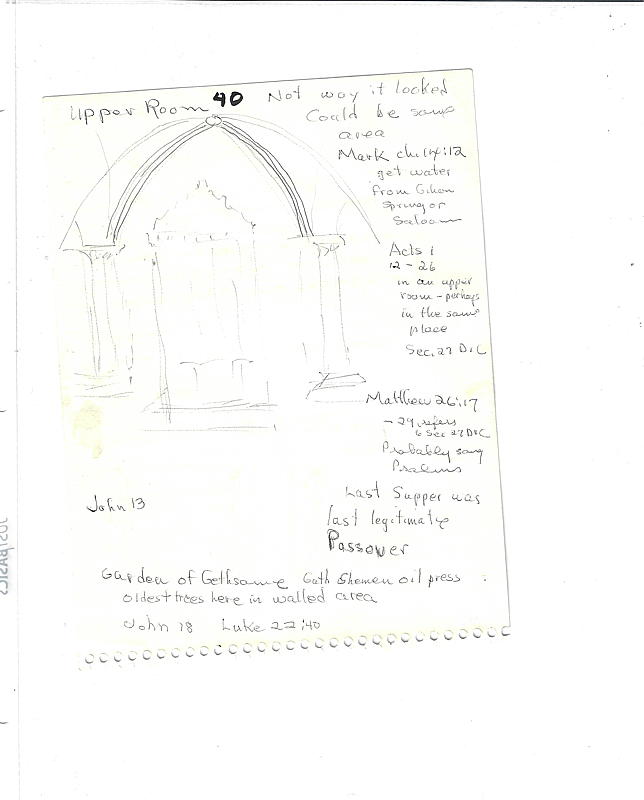 Upper Room 40
Not way it looked
Could be same
area
Mark ch.14:12
get water
from Gihon
Spring or
Saloam
Acts 1
12 - 26
in an upper
room - perhaps
in the same
place
Sec. 27 D&C
Matthew 26:17
- 29 refers
to Sec 27 D&C
Probably sang
Psalms
Last Supper was
last legitimate
Passover
John 13
Garden of Gethsame Gath Shemen oil press
oldest trees here in walled area
John 18 Luke 22:40